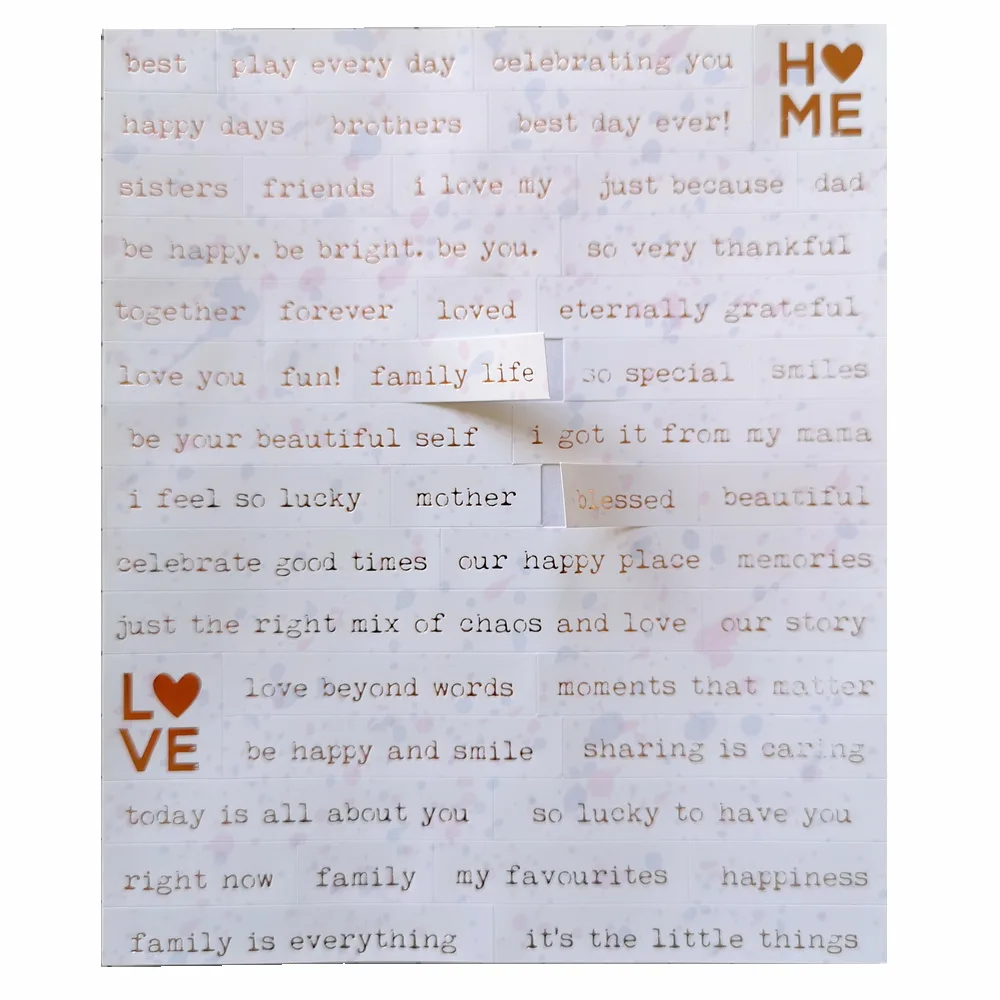 best play every day celebrating you
H♥
ME
happy days brothers best day ever!
sisters friends i love my just because dad
be happy. be bright. be you. so very thankful
together forever loved eternally grateful
love you fun! family life so special smiles
be your beautiful self i got it from my mama
i feel so lucky mother blessed beautiful
celebrate good times our happy place memories
just the right mix of chaos and love our story
L♥
VE
love beyond words moments that matter
be happy and smile sharing is caring
today is all about you so lucky to have you
right now family my favourites happiness
family is everything it's the little things